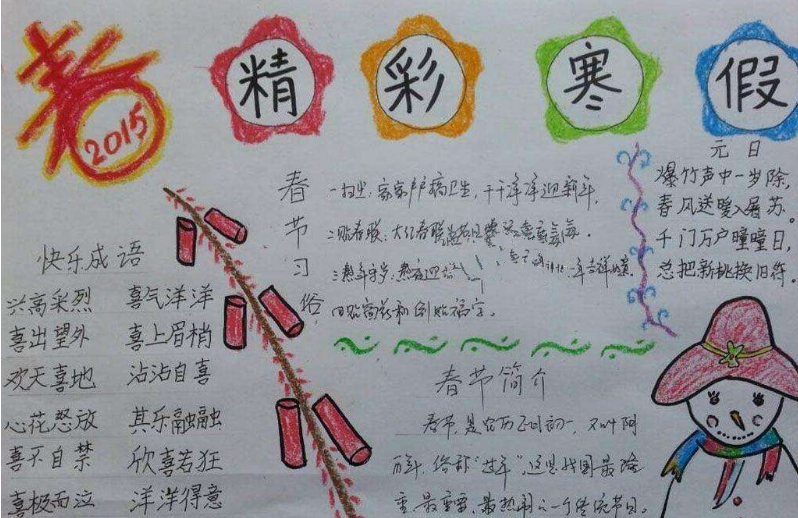 春
2015
精彩寒假
元日
爆竹声中一岁除,
春风送暖入屠苏。
千门万户瞳瞳日,
总把新桃换旧符。
春节习俗
一扫尘,家家户户搞卫生,干干净净迎新年,
二贴春联,大红春联
三熬年夜,
四贴窗花和倒贴福字。
快乐成语
兴高采烈 喜气洋洋
喜出望外 喜上眉梢
欢天喜地 沾沾自喜
心花怒放 其乐融融
喜不自禁 欣喜若狂
喜极而泣 洋洋得意
春节简介
春节,是农历正月初一,又叫阴
历年,俗称“过年”,这是我国最隆
重、最热闹的一个传统节日。